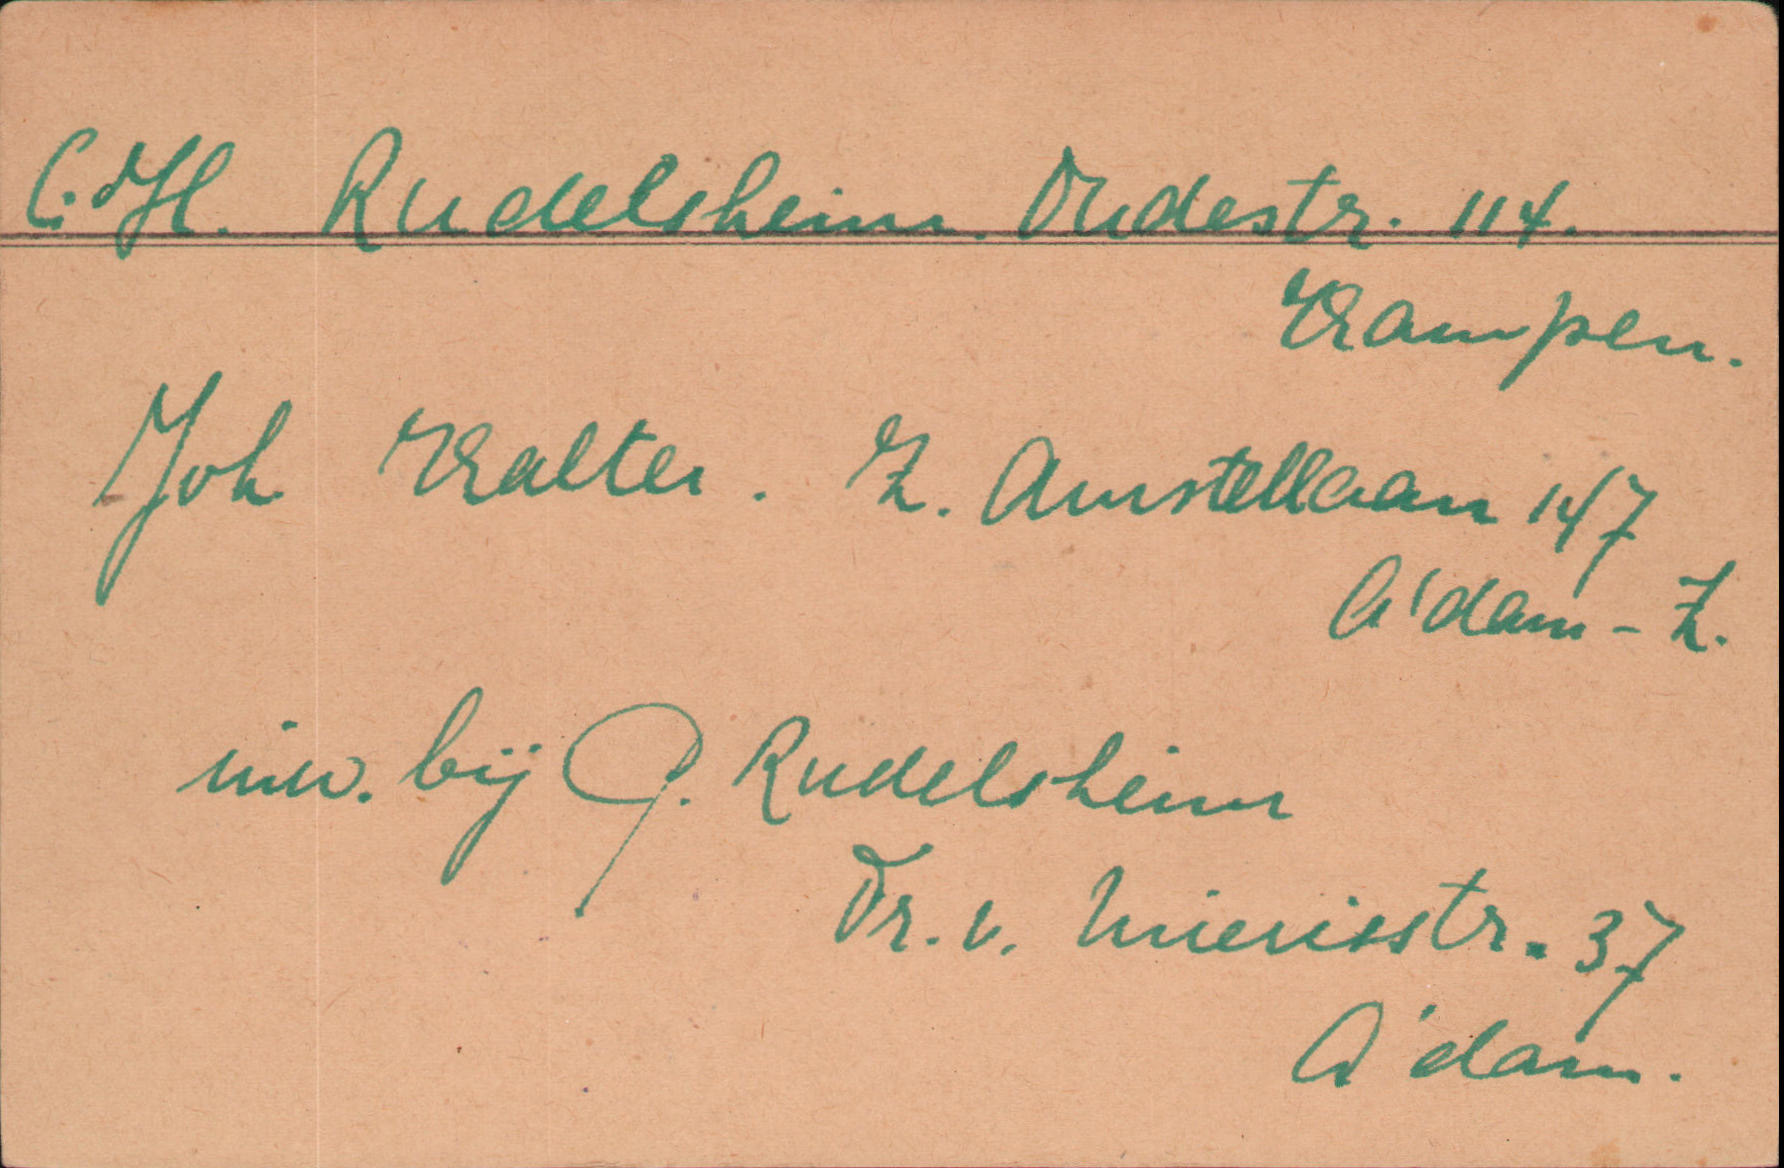 C. H. Rudelsheim. Oudestr. 114.
Kampen.
Joh Kalter. Z. Amstellaan 147
A'dam - Z.
inw. bij J. Rudelsheim
Fr. v. Mierisstr. 37
A'dam.